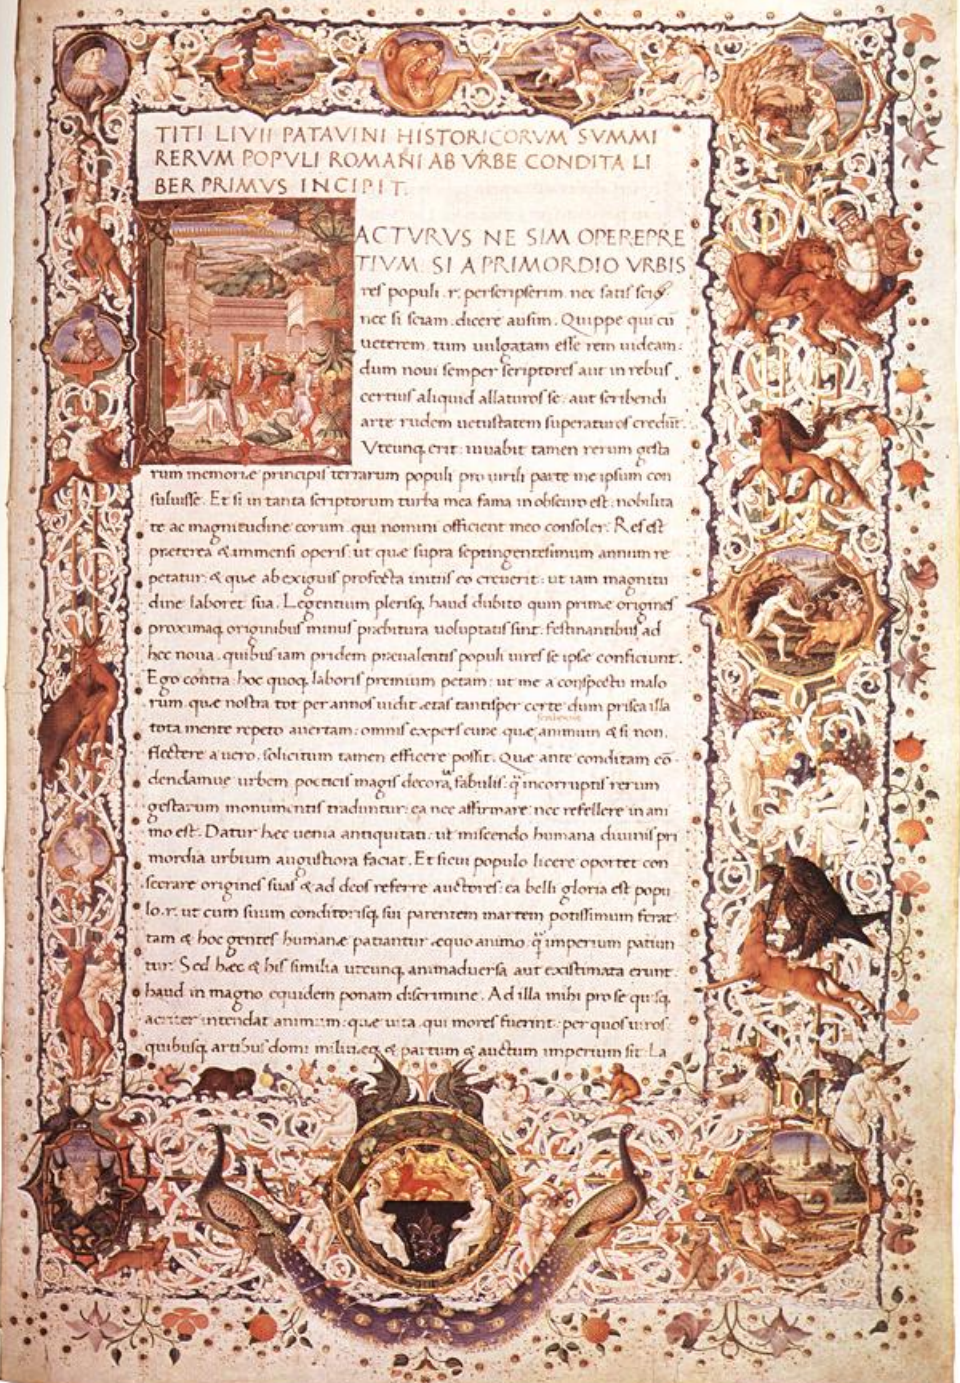 TITI LIVII PATAVINI HISTORICORVM SVMMI
RERVM POPVLI ROMANI AB VRBE CONDITA LI
BER PRIMVS INCIPIT.
FACTVRVS NE SIM OPEREPRE
TIVM. SI A PRIMORDIO VRBIS
res populi .r. perscripserim nec satis scio
nec si sciam .dicere ausim. Quippe qui cū
ueterem. tum uulgatam esse rem uideam:
dum noui semper scriptores aut in rebus
certius aliquid allaturos se: aut scribendi
arte rudem uetustatem superaturos credūt.
Vtcunq, erit: iuuabit tamen rerum gesta
rum memoriæ principis terrarum populi pro uirili parte me ipsum con
suluisse. Et si in tanta scriptorum turba mea fama in obscuro est: nobilita
te ac magnitudine eorum. qui nomini officient meo consoler. Res est
præterea & immensi operis ut quæ supra septingentesimum annum re
petatur: & quæ ab exiguis profecta initiis eo creuerit: ut iam magnitu
dine laboret sua. Legentium plerisq, haud dubito quin primæ origines
proximaq, originibus minus præbitura uoluptatis sint: festinantibus ad
hec noua. quibus iam pridem præualentis populi uires se ipsæ conficiunt.
Ego contra: hoc quoq, laboris premium petam: ut me a conspectu malo
rum. quæ nostra tot per annos uidit ætas tantisper certe dum prisca illa
tota mente repeto auertam: omnis expers curæ quæ, animum & si non.
scribentis
flectere a uero. solicitum tamen efficere possit. Quæ ante conditam cō
dendamue urbem poeticis magis decora, fabulis: q̄ incorruptis rerum
gestarum monumentis traduntur: ea nec affirmare: nec refellere in ani
mo est. Datur hæc uenia antiquitati: ut miscendo humana diuinis pri
mordia urbium augustiora faciat. Et si cui populo licere oportet con
secrare origines suas & ad deos referre auctores: ea belli gloria est popu
lo .r. ut cum suum conditorisq, sui parentem martem potissimum ferat
tam & hoc gentes humanæ patiantur æquo animo. q̄ imperium patiun
tur. Sed hæc & his similia utcunq, animaduersa aut existimata erunt:
haud in magno equidem ponam discrimine. Ad illa mihi pro se quisq,
acriter intendat animum: quæ uita. qui mores fuerint: per quos uiros
quibusq, artibus domi militieq, & partum & auctum imperium sit. La